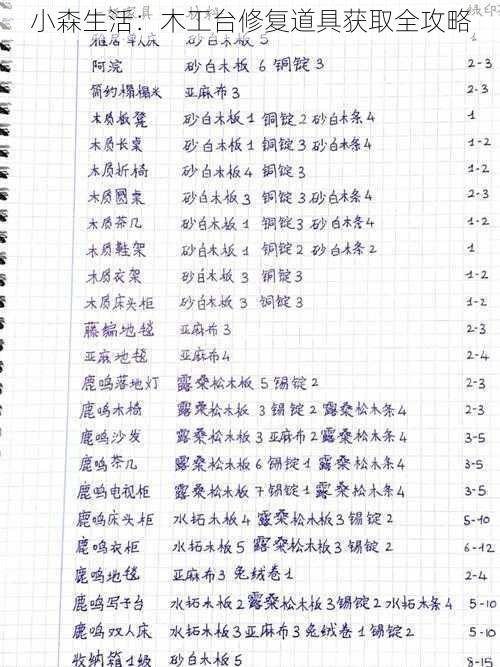 小森生活：木工台修复道具获取全攻略
雅居单人床 砂白木板 5
阿浣 砂白木板 6 铜锭 3 2-3
简约榻榻米 亚麻布 3 2-3
木质板凳 砂白木板 1 铜锭 2 砂白木条 4 1
木质长桌 砂白木板 1 铜锭 3 砂白木条 4 1-2
木质折椅 砂白木板 4 铜锭 3 1-2
木质圆桌 砂白木板 3 铜锭 3 砂白木条 4 2-3
木质茶几 砂白木板 1 铜锭 3 砂白木条 4 1-2
木质鞋架 砂白木板 1 铜锭 2 砂白木条 2 1
木质衣架 砂白木板 3 铜锭 3 1-2
木质床头柜 砂白木板 3 铜锭 3 1-2
藤编地毯 亚麻布 3 2-3
亚麻地毯 亚麻布 4 2-4
鹿鸣落地灯 露桑松木板 5 锡锭 2 2-3
鹿鸣木椅 露桑松木板 3 锡锭 2 露桑松木条 4 2-3
鹿鸣沙发 露桑松木板 3 亚麻布 2 露桑松木条 4 3-5
鹿鸣茶几 露桑松木板 6 锡锭 1 露桑松木条 4 3-5
鹿鸣电视柜 露桑松木板 7 锡锭 1 露桑松木条 4 3-5
鹿鸣床头柜 水拓木板 4 露桑松木板 3 锡锭 2 5-10
鹿鸣衣柜 水拓木板 5 露桑松木板 3 锡锭 2 6-12
鹿鸣地毯 亚麻布 3 兔绒卷 1 2-4
鹿鸣写字台 水拓木板 2 露桑松木板 3 锡锭 2 水拓木条 4 5-10
鹿鸣双人床 水拓木板 3 亚麻布 3 兔绒卷 1 锡锭 2 5-10
收纳箱1级 砂白木板 5 8-15